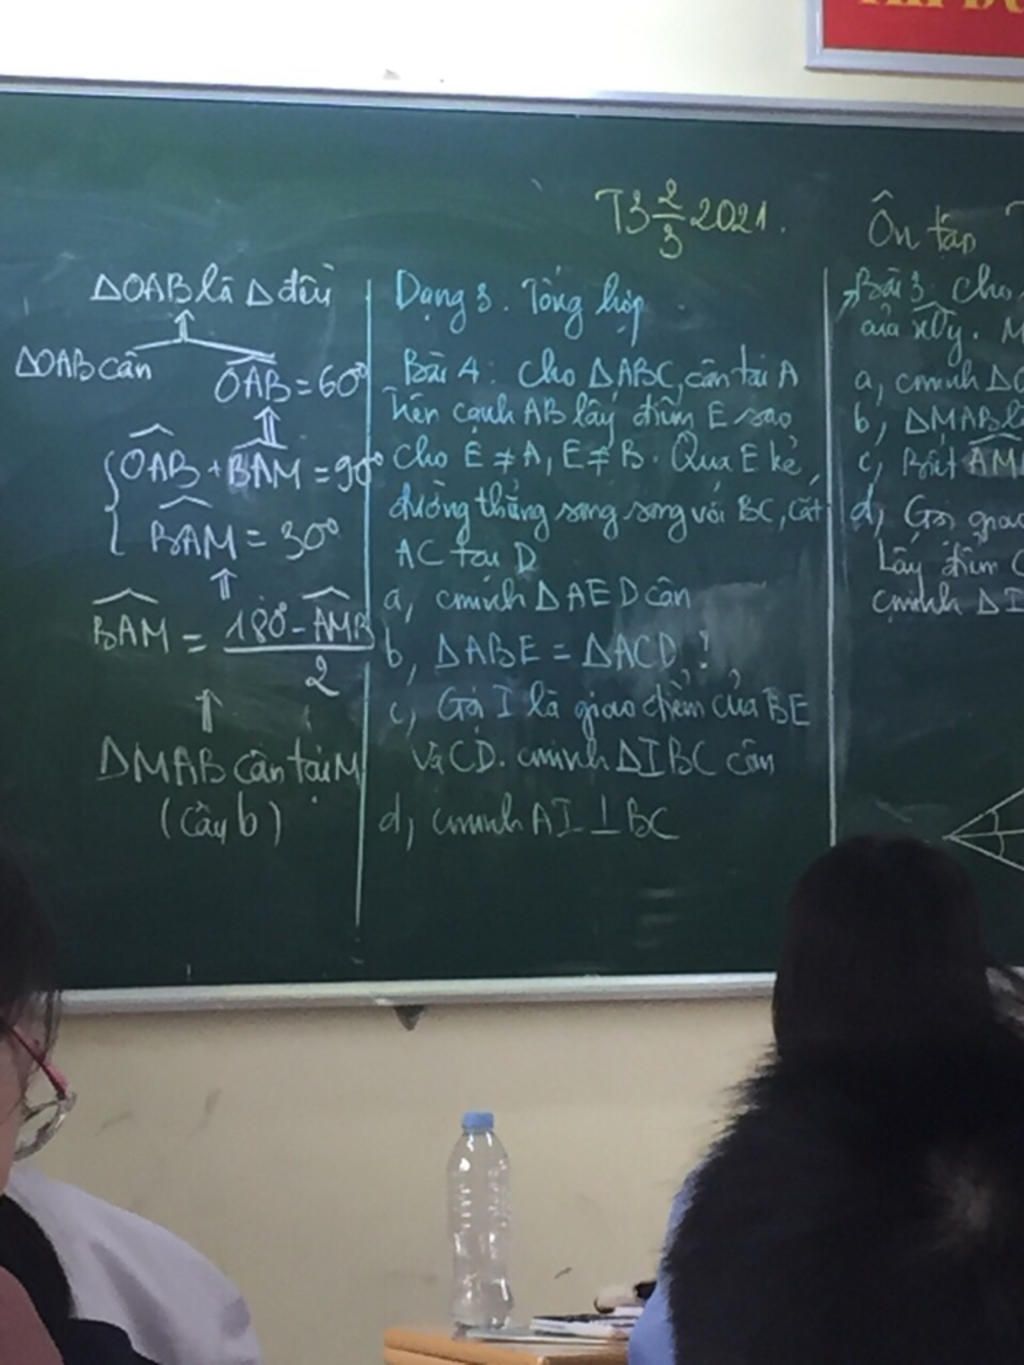 T3 2/3 2021.
ΔOAB là Δ đều
⇑
ΔOAB cân
OAB = 60°
⇑
OAB + BAM = 90°
BAM = 30°
⇑
BAM = 180° - AMB / 2
⇑
ΔMAB cân tại M
(câu b)
Dạng 3. Tổng hợp
Bài 4: Cho ΔABC, cân tại A
trên cạnh AB lấy điểm E sao
cho E ≠ A, E ≠ B. Qua E kẻ
đường thẳng song song với BC, cắt
AC tại D
a, cminh ΔAED cân
b, ΔABE = ΔACD !
c, Gọi I là giao điểm của BE
và CD. cminh ΔIBC cân
d, cminh AI ⊥ BC
Ôn tập
Bài 3: Cho
của xOy. M
a, cminh Δ
b, ΔMAB
c, Biết AM
d, Gọi giao
Lấy điểm
cminh ΔI